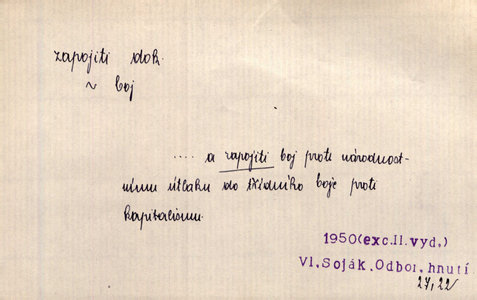 zapojiti dok.
~ boj
.... a zapojiti boj proti národnost-
nímu útlaku do třídního boje proti
kapitalismu.
1950(exc.II.vyd.)
Vl.Soják.Odbor.hnutí
27,22